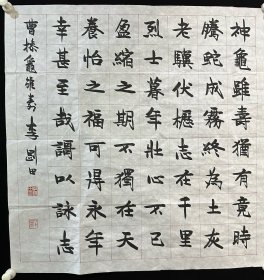 神龜雖壽猶有竟時
騰蛇成霧終為土灰
老驥伏櫪志在千里
烈士暮年壯心不已
盈縮之期不獨在天
養怡之福可得永年
幸甚至哉謌以詠志
曹操龜雖壽 李剛田